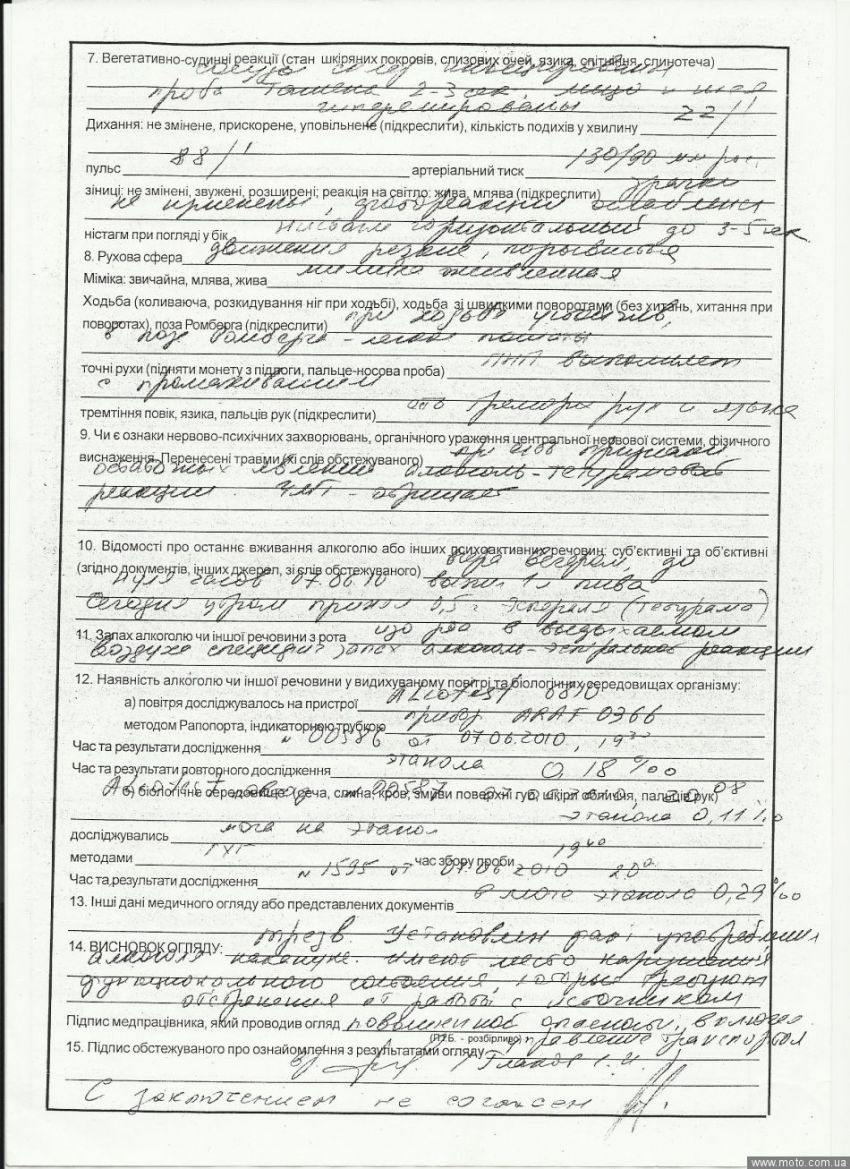 7. Вегетативно-судинні реакції (стан шкіряних покровів, слизових очей, язика, спітніння, слинотеча)
сосуды склер инъецированы
проба Ташена 2-3 сек, лицо и шея
гиперемированы
Дихання: не змінене, прискорене, уповільнене (підкреслити), кількість подихів у хвилину 22/1'
пульс 88/1' артеріальний тиск 130/90 мм рт.
зіниці: не змінені, звужені, розширені; реакція на світло: жива, млява (підкреслити) зрачки
не изменены, фотореакции ослаблены
ністагм при погляді у бік нистагм горизонтальный до 3-5 сек
8. Рухова сфера движения резкие, порывистые
Міміка: звичайна, млява, жива мимика оживленная
Ходьба (коливаюча, розкидування ніг при ходьбі), ходьба зі швидкими поворотами (без хитань, хитання при
поворотах), поза Ромберга (підкреслити) при ходьбе устойчив,
в позе Ромберга - легкое
точні рухи (підняти монету з підлоги, пальце-носова проба) ПНП выполняет
с промахиванием
тремтіння повік, язика, пальців рук (підкреслити) тремора рук и языка
9. Чи є ознаки нервово-психічних захворювань, органічного ураження центральної нервової системи, фізичного
виснаження. Перенесені травми (зі слів обстежуваного)
явлений алкоголь-тетурамовой
реакции. ЧМТ - отрицает
10. Відомості про останнє вживання алкоголю або інших психоактивних речовин: суб'єктивні та об'єктивні
(згідно документів, інших джерел, зі слів обстежуваного) вчера вечером, до
нуля часов 07.06.10 выпил 1л пива
Сегодня утром принял 0,5 г Эспераля (Тетурама)
11. Запах алкоголю чи іншої речовини з рота изо рта в выдыхаемом
воздухе специфич запах реакции
12. Наявність алкоголю чи іншої речовини у видихуваному повітрі та біологічних середовищах організму:
а) повітря досліджувалось на пристрої Alcotest 6810
методом Рапопорта, індикаторною трубкою прибор ARAF 0366
Час та результати дослідження № 00586 от 07.06.2010, 19
Час та результати повторного дослідження этанола 0,18 ‰
б) біологічне середовище: (сеча, слина, кров, змуви поверхні губ, шкіри обличчя, пальців рук)
№ 00587 20 08
этанола 0,11 ‰
досліджувались моча на этанол
методами ГЖХ час збору проби 19 40
Час та результати дослідження № 1595 от 07.06.2010 20
в моче этанола 0,29 ‰
13. Інші дані медичного огляду або представлених документів
14. ВИСНОВОК ОГЛЯДУ: трезв. Установлен факт употребления
алкоголя накануне. Имеют место нарушения
функционального состояния, которые требуют
отстранения от работы с источником
Підпис медпрацівника, який проводив огляд повышенной опасности, включая
(П.І.Б. - розбірливо) управление транспортом
15. Підпис обстежуваного про ознайомлення з результатами огляду
С заключением не согласен
www.moto.com.ua